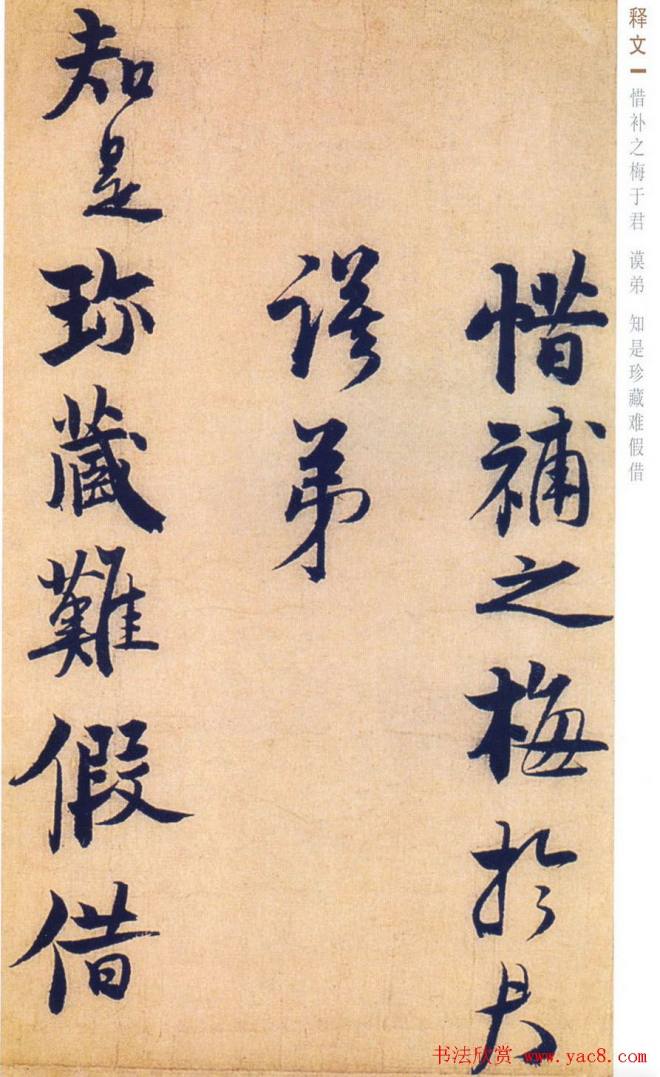 释文 惜补之梅于君 谟弟 知是珍藏难假借
惜補之梅於君
謨弟
知是珎藏難假借
书法欣赏 www.yac8.com